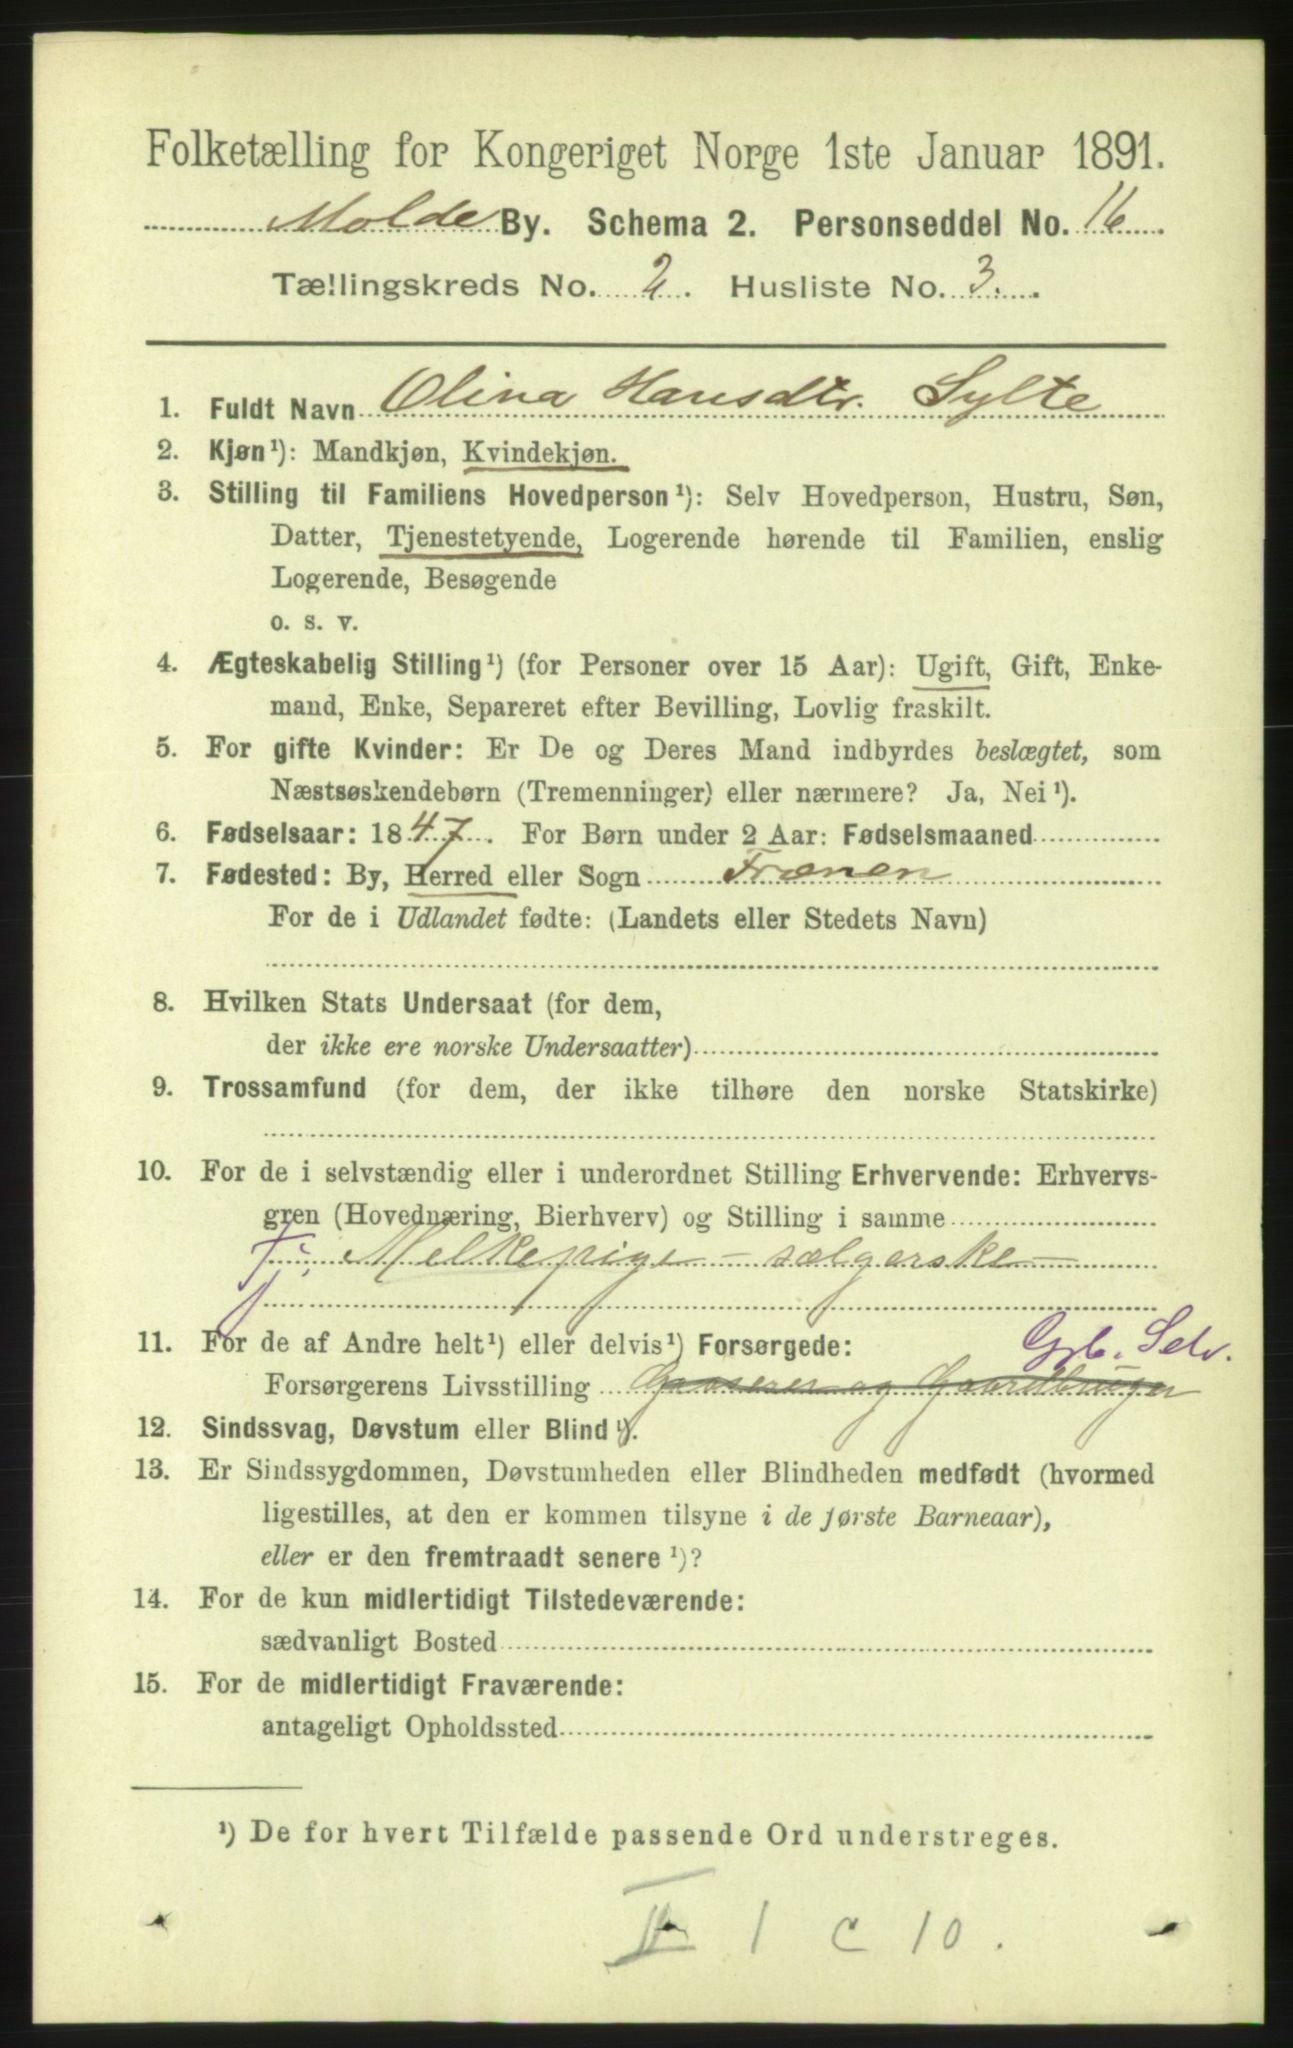 Folketælling for Kongeriget Norge 1ste Januar 1891.
Molde By. Schema 2. Personseddel No. 16
Tællingskreds No. 2. Husliste No. 3.
1. Fuldt Navn Olina Hansdtr. Sylte
2. Kjøn¹): Mandkjøn, Kvindekjøn.
3. Stilling til Familiens Hovedperson¹): Selv Hovedperson, Hustru, Søn,
Datter, Tjenestetyende, Logerende hørende til Familien, enslig
Logerende, Besøgende
o. s. v.
4. Ægteskabelig Stilling¹) (for Personer over 15 Aar): Ugift, Gift, Enke-
mand, Enke, Separeret efter Bevilling, Lovlig fraskilt.
5. For gifte Kvinder: Er De og Deres Mand indbyrdes beslægtet, som
Næstsøskendebørn (Tremenninger) eller nærmere? Ja, Nei¹).
6. Fødselsaar: 1847. For Børn under 2 Aar: Fødselsmaaned
7. Fødested: By, Herred eller Sogn Frænen
For de i Udlandet fødte: (Landets eller Stedets Navn)
8. Hvilken Stats Undersaat (for dem,
der ikke ere norske Undersaatter)
9. Trossamfund (for dem, der ikke tilhøre den norske Statskirke)
10. For de i selvstændig eller i underordnet Stilling Erhvervende: Erhvervs-
gren (Hovednæring, Bierhverv) og Stilling i samme
Tj. Melkepige - sælgerske -
11. For de af Andre helt¹) eller delvis¹) Forsørgede: Grb. Selv.
Forsørgerens Livsstilling og Gaardbruger
12. Sindssvag, Døvstum eller Blind¹).
13. Er Sindssygdommen, Døvstumheden eller Blindheden medfødt (hvormed
ligestilles, at den er kommen tilsyne i de første Barneaar),
eller er den fremtraadt senere¹)?
14. For de kun midlertidigt Tilstedeværende:
sædvanligt Bosted
15. For de midlertidigt Fraværende:
antageligt Opholdssted
¹) De for hvert Tilfælde passende Ord understreges.
II 1 C 10.